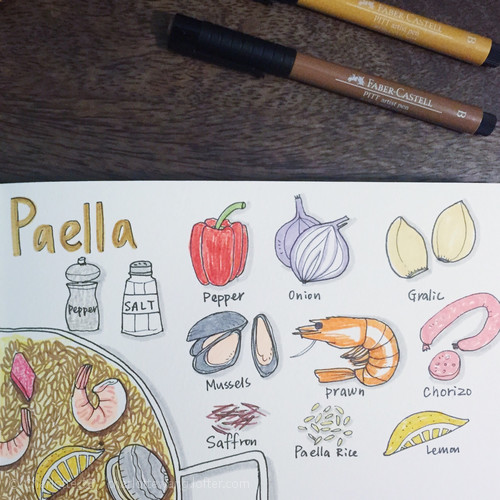 FABER-CASTELL
PITT artist pen
B
FABER-CASTELL
PITT artist pen
B
Paella
Pepper
SALT
Pepper
Onion
Gralic
Mussels
prawn
Chorizo
Saffron
Paella Rice
Lemon